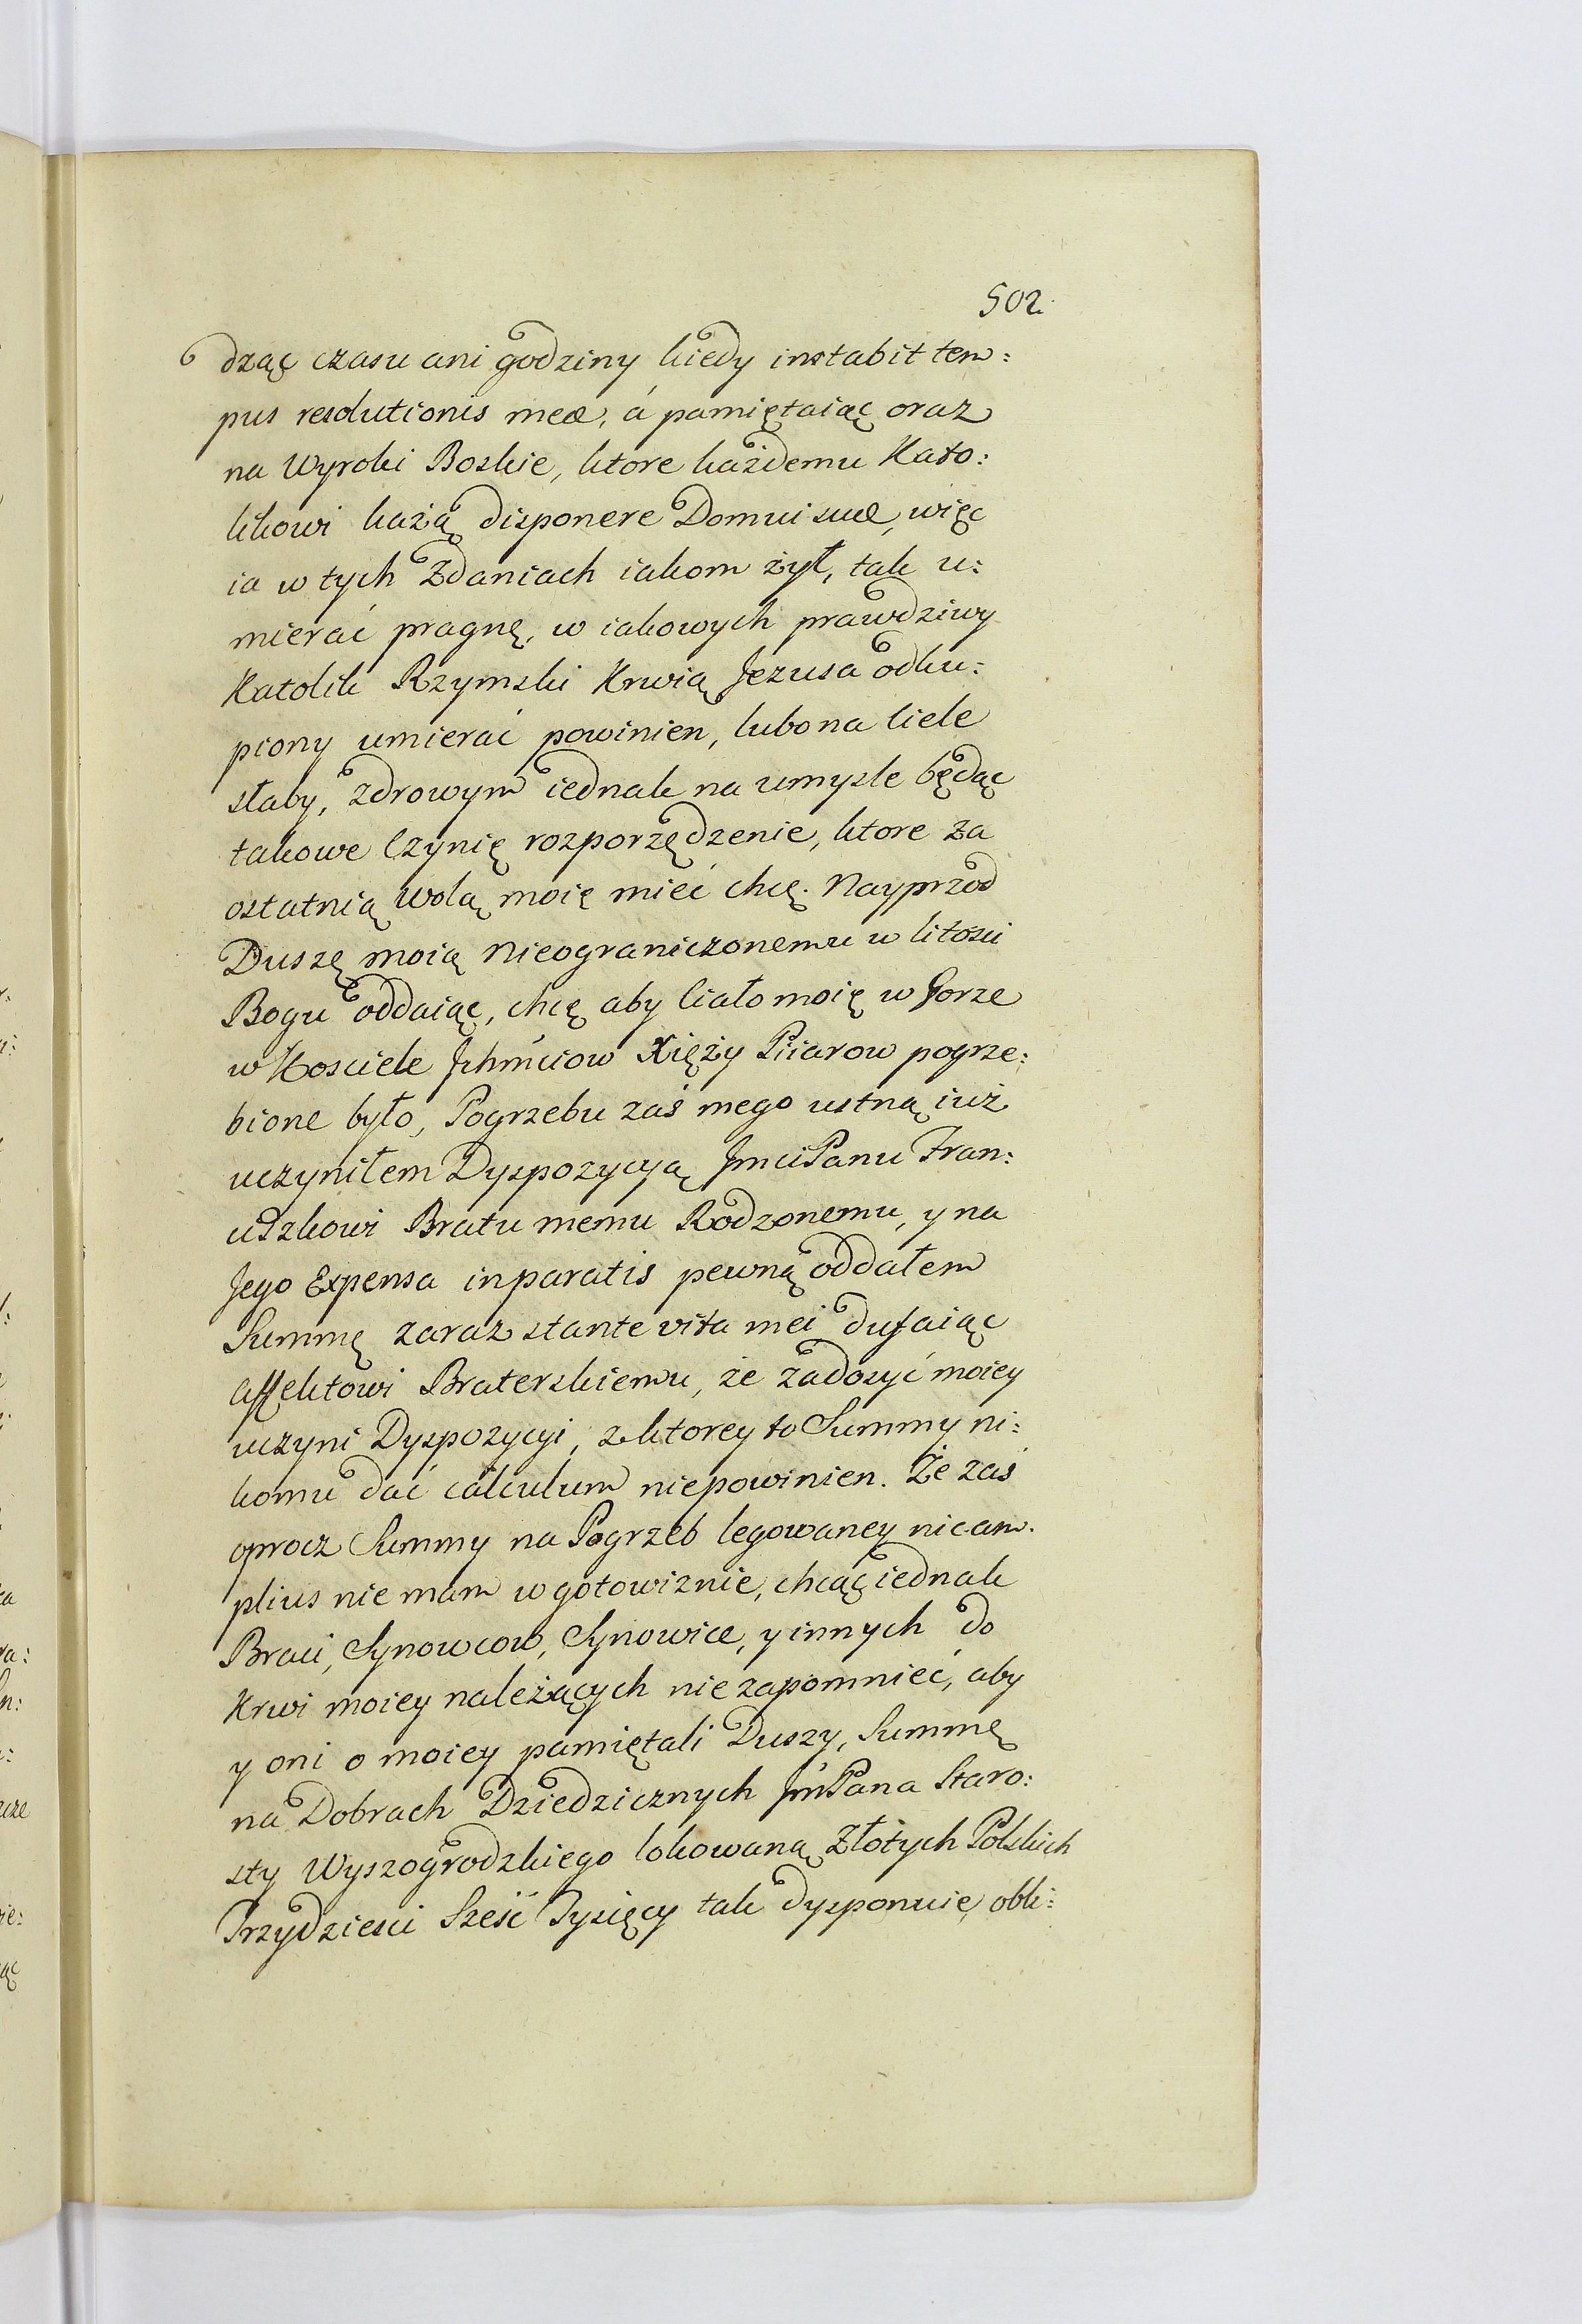 502.
dząc czasu ani godziny kiedy instabit tem:
pus resolutionis meæ, á pamiętaiąc oraz
na Wyroki Boskie, ktore każdemu Kato:
likowi każą disponere Domui suæ, więc
ia w tych Zdaniach iakom żył, tak u:
mierać pragnę, w iakowych prawdziwy
Katolik Rzymski Krwią Jezusa odku:
piony umierać powinien, lubo na Ciele
słaby, zdrowym iednak na umysle będąc
takowe Czynię rozporzędzenie, ktore za
ostatnią Wolą moię mieć chcę. Nayprzod
Duszę moią Nieograniczonemu w litosci
Bogu oddaiąc, chcę aby Ciało moię w Gorze
w Kosciele Jchmciow Xięży Piiarow pogrze:
bione było, Pogrzebu zaś mego ustną iuż
uczyniłem Dyspozycyą Jmci Panu Fran:
uszkowi Bratu memu Rodzonemu, y na
Jego Expensa inparatis pewną oddałem
Summę zaraz stante vita mei dufaiąc
Affektowi Braterskiemu, że zadosyć moiey
uczyni Dyspozycyi, z ktorey to Summy ni:
komu dać calculum niepowinien. Że zaś
oprocz Summy na Pogrzeb legowaney nic am.
plius nie mam w gotowiznie, chcąc iednak
Braci, Synowcow, Synowice, y innych do
Krwi moiey należących nie zapomnieć, aby
y oni o moiey pamiętali Duszy, Summę
na Dobrach Dziedzicznych Jm Pana Staro:
sty Wyszogrodzkiego lokowaną Złotych Polskich
Trzydziesci Sześć Tysięcy tak dysponuię, obli: